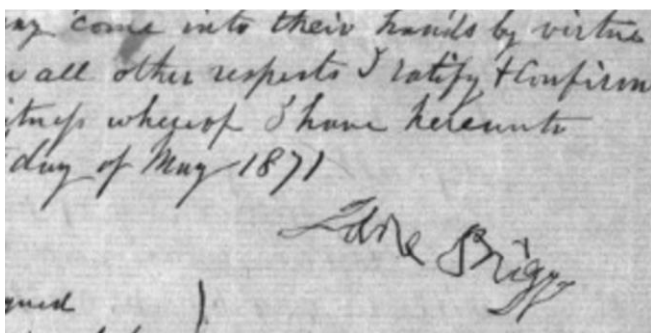 may come into their hands by virtue
all other respects I ratify & Confirm
itness whereof I have hereunto
day of May 1871
Briggs
igned